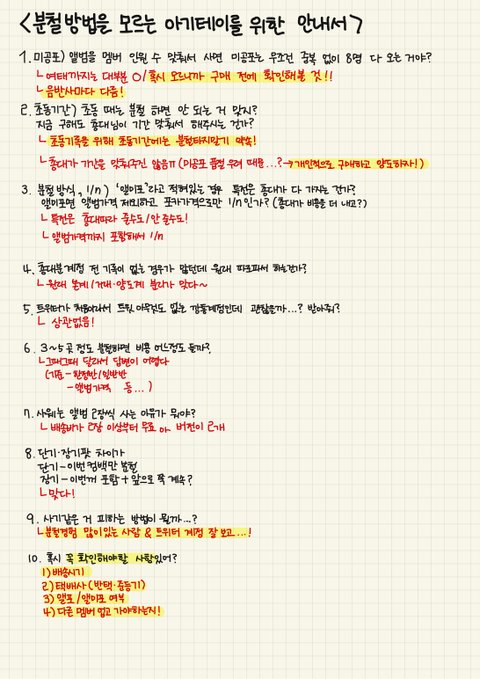 <분철방법을 모르는 아기테이를 위한 안내서>
1. 미공포) 앨범을 멤버 인원 수 맞춰서 사면 미공포는 무조건 중복 없이 8명 다 오는 거야?
ㄴ 여태까지는 대부분 O/혹시 모르니까 구매 전에 확인해볼 것!!
ㄴ 음반사마다 다름!
2. 초동기간) 초동 때는 분철 하면 안 되는 거 맞지?
지금 구해도 총대님이 기간 맞춰서 해주시는 건가?
ㄴ 초동기록을 위해 초동기간에는 분철타지말기 약속!
ㄴ 총대가 기간을 맞춰주진 않음ㅠ (미공포 품절 우려 때문...?→개인적으로 구매하고 양도하자!)
3. 분철 방식, 1/n) '앨미포'라고 적혀있는 경우 특전은 총대가 다 가지는 건가?
앨미포면 앨범가격 제외하고 포카가격으로만 1/n인가? (총대가 비용을 더 내고?)
ㄴ 특전은 총대따라 줄수도/안 줄수도!
ㄴ 앨범가격까지 포함해서 1/n
4. 총대분계정 전 기록이 없는 경우가 많던데 원래 파로파서 하는건가?
ㄴ 원래 본계/거래·양도계 분리가 많다~
5. 트위터가 처음이라서 트친,아무것도 없는 깡통계정인데 괜찮은가...? 받아줘?
ㄴ 상관없음!
6. 3~5곳 정도 분철하면 비용 어느정도 들까?
ㄴ그때그때 달라서 답변이 어렵다
(기준 - 한정반/일반반
- 앨범가격 등...)
7. 사웨는 앨범 2장씩 사는 이유가 뭐야?
ㄴ 배송비가 2장 이상부터 무료 or 버전이 2개
8. 단기·장기팟 차이가
단기 - 이번 컴백만 분철
장기 - 이번꺼 포함 + 앞으로 쭉 계속?
ㄴ맞다!
9. 사기같은 거 피하는 방법이 뭘까...?
ㄴ분철경험 많이있는 사람 & 트위터 계정 잘 보고...!
10. 혹시 꼭 확인해야할 사항있어?
1) 배송시기
2) 택배사 (반택·준등기)
3) 앨포/앨미포 여부
4) 다른 멤버 업고 가야하는지!